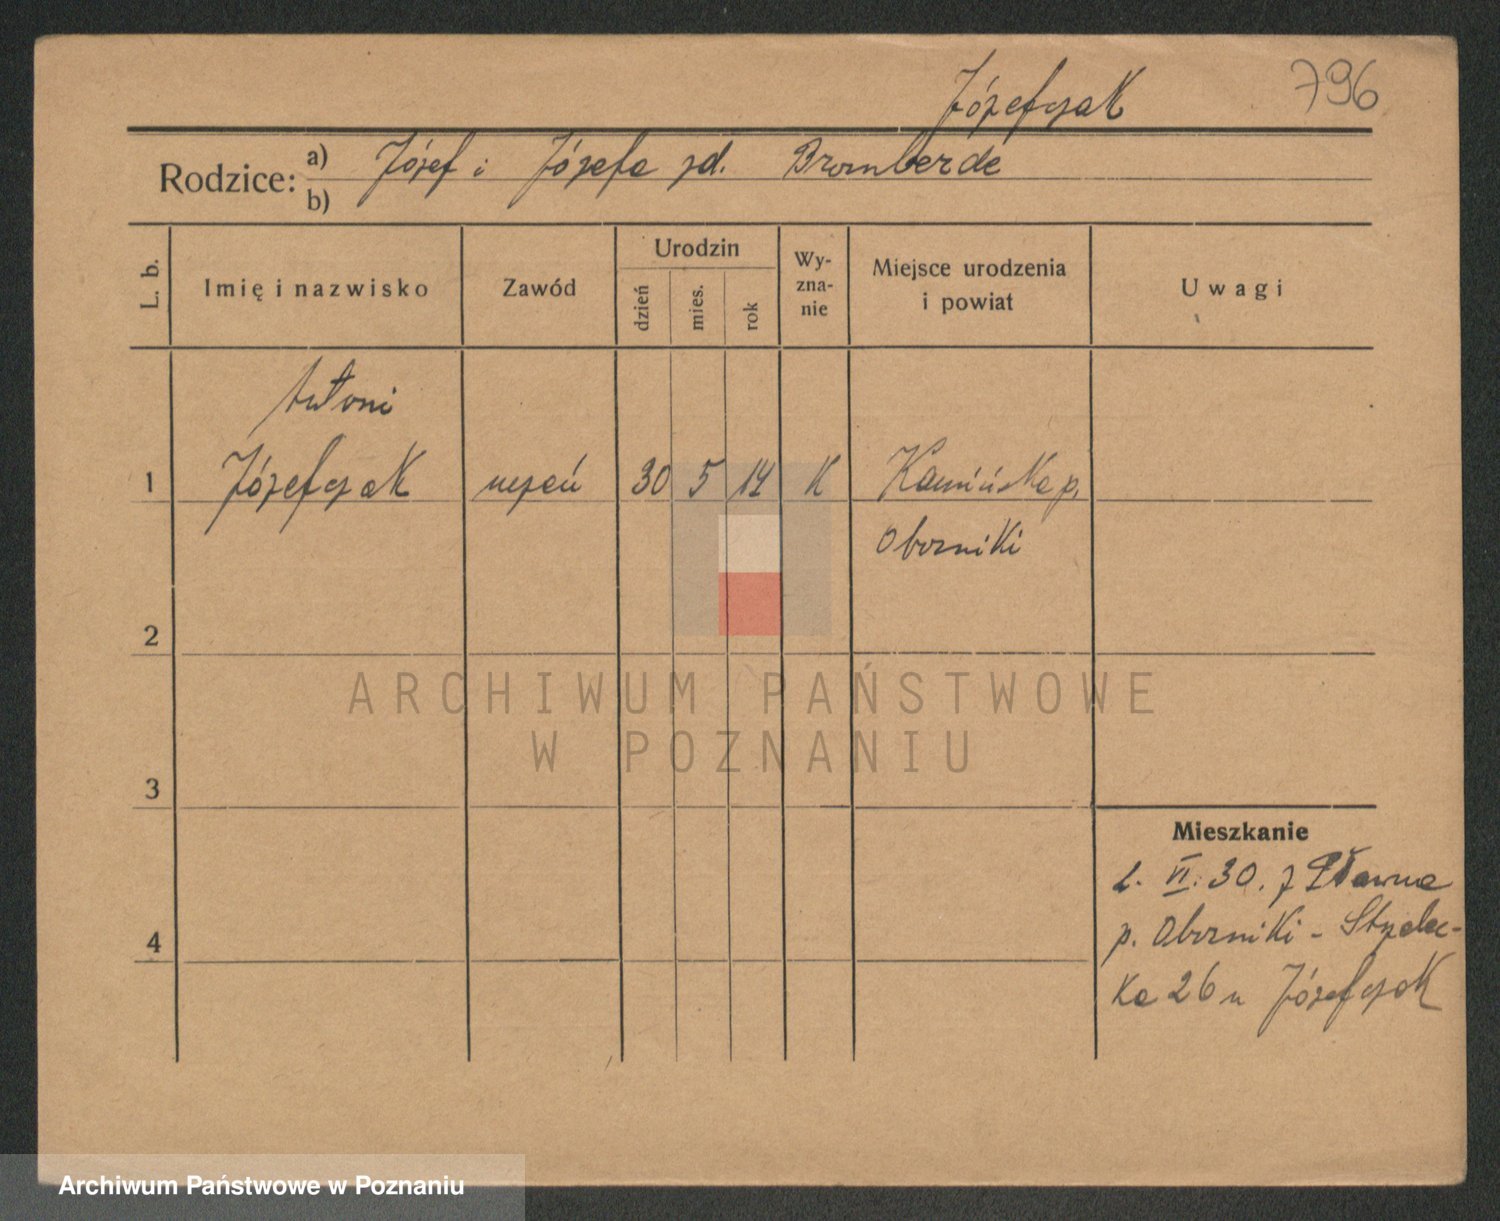 796
Józefczak
Rodzice: a) Józef i Józefa zd. Bromberde
b)
L. b. Imię i nazwisko Zawód Urodzin dzień mies. rok Wy-zna-nie Miejsce urodzenia i powiat Uwagi
Antoni
1 Józefczak uczeń 30 5 14 K Kamińska p.
Oborniki
2
ARCHIWUM PAŃSTWOWE
W POZNANIU
3
Mieszkanie
2. VI. 30. z Pławna
p. Oborniki - Strzelec-
4
ka 26 u Józefczak
Archiwum Państwowe w Poznaniu